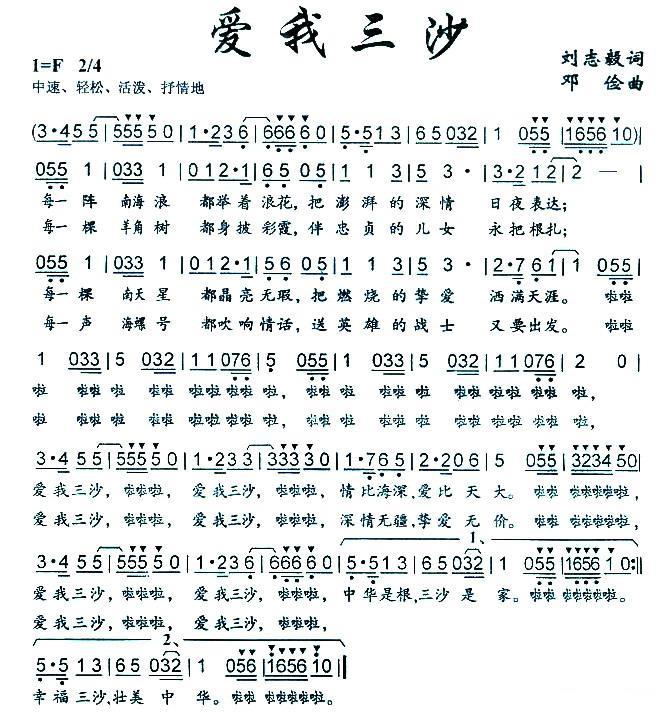 爱我三沙
1=F 2/4
刘志毅词
中速、轻松、活泼、抒情地
邓俭曲
(3·4 5 5 | 555 5 0 | 1·2 3 6 | 666 6 0 | 5·5 1 3 | 6 5 032 | 1 055 | 1656 1 0) |
055 1 | 033 1 | 0 1 2·1 | 6 5 0 5 | 1 1 3 | 5 3· | 3·2 1 2 | 2 — |
每一阵 南海浪 都举着浪花，把澎湃的深情 日夜表达；
每一棵 羊角树 都身披彩霞，伴忠贞的儿女 永把根扎；
055 1 | 033 1 | 0 1 2·1 | 5 6 0 5 | 1 1 3 | 5 3· | 2·7 6 1 | 1 055 |
每一棵 南天星 都晶亮无瑕，把燃烧的挚爱 洒满天涯。 啦啦
每一声 海螺号 都吹响情话，送英雄的战士 又要出发。 啦啦
1 033 | 5 032 | 1 1 076 | 5 055 | 1 033 | 5 032 | 1 1 076 | 2 0 |
啦 啦啦 啦 啦啦 啦啦 啦啦 啦 啦啦 啦 啦啦 啦 啦啦 啦啦 啦啦 啦，
啦 啦啦 啦 啦啦 啦啦 啦啦 啦 啦啦 啦 啦啦 啦 啦啦 啦啦 啦啦 啦，
3·4 5 5 | 555 5 0 | 1·2 3 3 | 333 3 0 | 1·7 6 5 | 2·2 0 6 | 5 055 | 3234 5 0 |
爱我三沙，啦啦啦， 爱我三沙，啦啦啦， 情比海深，爱比天大。 啦啦 啦啦啦啦啦，
爱我三沙，啦啦啦， 爱我三沙，啦啦啦， 深情无疆，挚爱无价。 啦啦 啦啦啦啦啦，
1、
3·4 5 5 | 555 5 0 | 1·2 3 6 | 666 6 0 | 5·5 1 3 | 6 5 032 | 1 055 | 1656 1 0 :‖
爱我三沙，啦啦啦， 爱我三沙，啦啦啦， 中华是根，三沙是 家。啦啦 啦啦啦啦啦。
爱我三沙，啦啦啦， 爱我三沙，啦啦啦，
2、
5·5 1 3 | 6 5 032 | 1 056 | 1656 1 0 ‖
幸福三沙，壮美中 华。啦啦 啦啦啦啦啦。